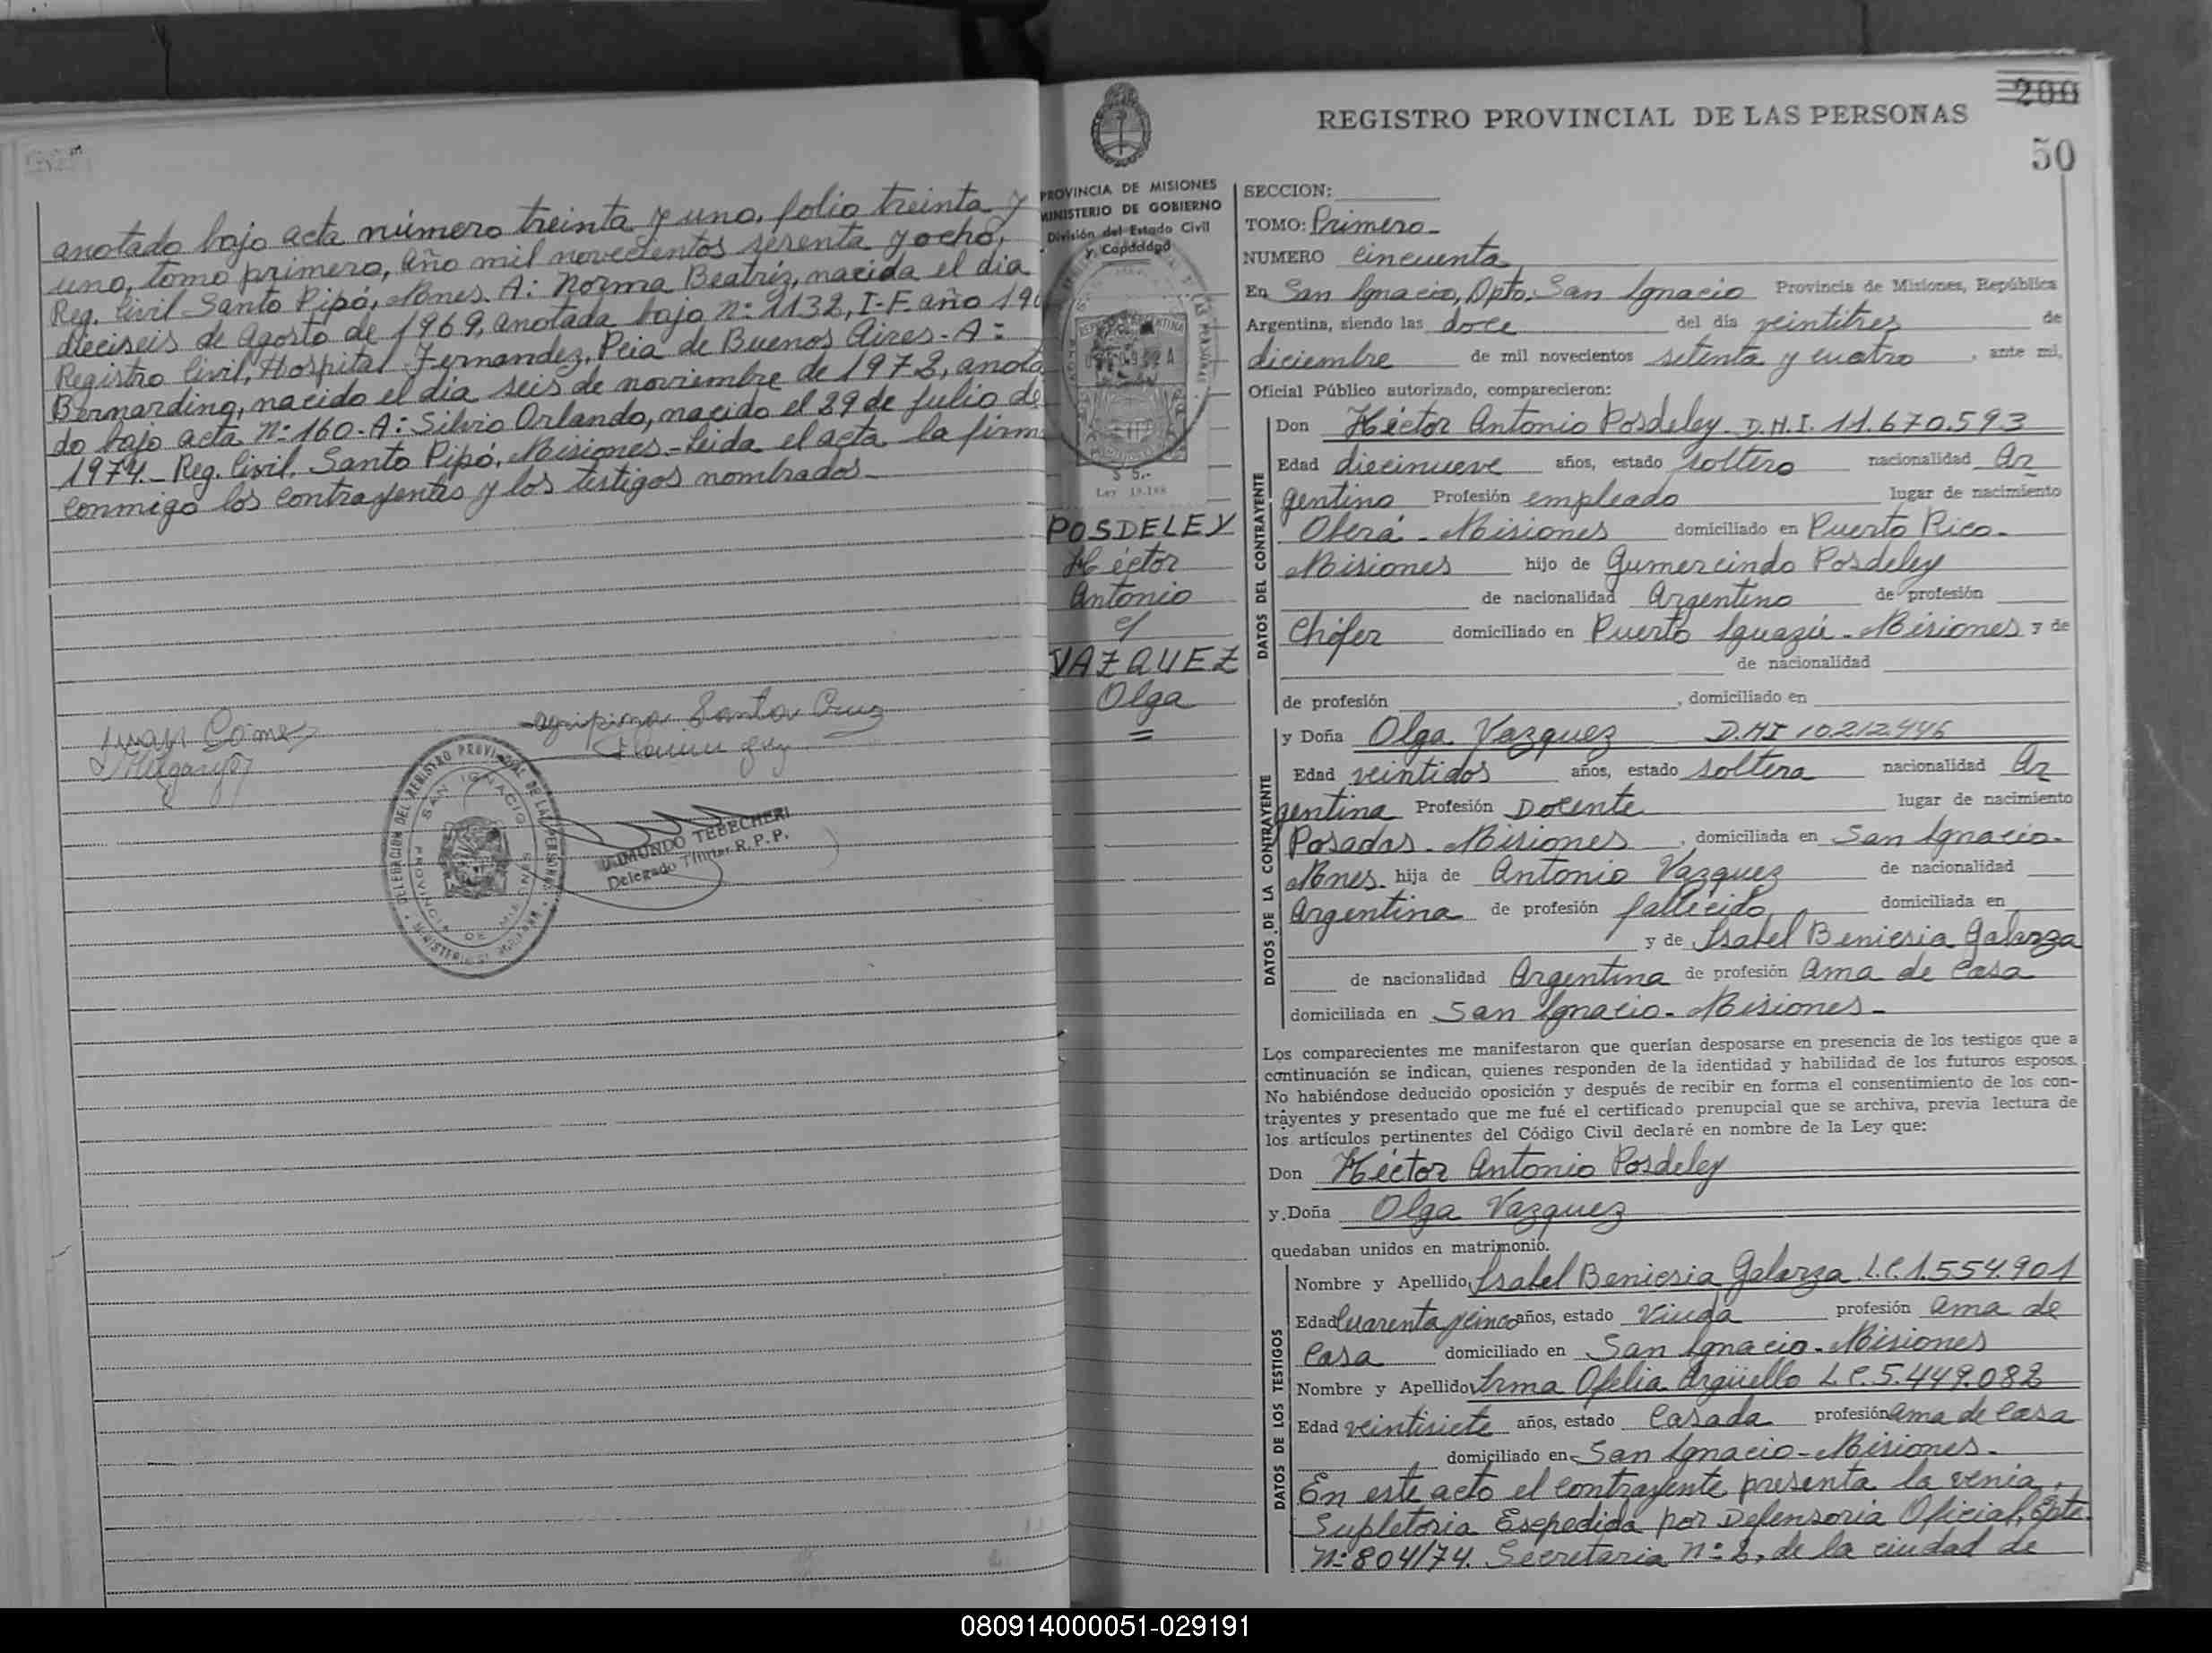 anotado bajo acta número treinta y uno, folio treinta y
uno, tomo primero, año mil novecientos sesenta y ocho,
Reg. Civil Santo Pipó, Mnes. A: Norma Beatriz, nacida el dia
dieciseis de agosto de 1969, anotada bajo nº 1132, I-F. año 19
Registro Civil, Hospital Fernandez, Pcia de Buenos Aires - A:
Bernardino, nacido el dia seis de noviembre de 1972, anota
do bajo acta nº 160 - A: Silvio Orlando, nacido el 29 de Julio de
1974. - Reg. Civil, Santo Pipó, Misiones - Leida el acta la firm
conmigo los contrayentes y los testigos nombrados -
Juan Gomez
agripina Santa Cruz
DELEGACION DEL REGISTRO PROVINCIAL DE LAS PERSONAS
SAN IGNACIO
PROVINCIA DE MISIONES
TEBECHERI
Delegado Titular R. P. P.
PROVINCIA DE MISIONES
MINISTERIO DE GOBIERNO
División del Estado Civil
y Capacidad
$ 5.-
Ley
POSDELEY
Héctor
Antonio
c/
VAZQUEZ
Olga
REGISTRO PROVINCIAL DE LAS PERSONAS
200
50
SECCION:
TOMO: Primero -
NUMERO cincuenta
En San Ignacio, Dpto. San Ignacio Provincia de Misiones, República
Argentina, siendo las doce del día veintitres de
diciembre de mil novecientos setenta y cuatro, ante mi,
Oficial Público autorizado, comparecieron:
DATOS DEL CONTRAYENTE
Don Héctor Antonio Posdeley - D.N.I. 11.670.593
Edad diecinueve años, estado soltero nacionalidad Ar
gentino Profesión empleado lugar de nacimiento
Oberá - Misiones domiciliado en Puerto Rico -
Misiones hijo de Gumercindo Posdeley
de nacionalidad Argentino de profesión
Chófer domiciliado en Puerto Iguazú - Misiones y de
de nacionalidad
de profesión , domiciliado en
DATOS DE LA CONTRAYENTE
y Doña Olga Vazquez D.N.I 10.212.946
Edad veintidos años, estado soltera nacionalidad Ar
gentina Profesión Docente lugar de nacimiento
Posadas - Misiones , domiciliada en San Ignacio -
Mnes. hija de Antonio Vazquez de nacionalidad
Argentina de profesión fallecido domiciliada en
y de Isabel Benicia Galarza
de nacionalidad Argentina de profesión Ama de Casa
domiciliada en San Ignacio - Misiones -
Los comparecientes me manifestaron que querían desposarse en presencia de los testigos que a
continuación se indican, quienes responden de la identidad y habilidad de los futuros esposos.
No habiéndose deducido oposición y después de recibir en forma el consentimiento de los con-
trayentes y presentado que me fué el certificado prenupcial que se archiva, previa lectura de
los artículos pertinentes del Código Civil declaré en nombre de la Ley que:
Don Héctor Antonio Posdeley
y Doña Olga Vazquez
quedaban unidos en matrimonio.
DATOS DE LOS TESTIGOS
Nombre y Apellido Isabel Benicia Galarza L.C. 1.554.901
Edad Cuarenta y cinco años, estado Viuda profesión Ama de
Casa domiciliado en San Ignacio - Misiones
Nombre y Apellido Irma Ofelia Argüello L.C. 5.449.082
Edad veintisiete años, estado Casada profesión Ama de Casa
domiciliado en San Ignacio - Misiones -
En este acto el contrayente presenta la venia
Supletoria Expedida por Defensoria Oficial, Expte.
Nº 804/74. Secretaria nº 2, de la ciudad de
080914000051-029191